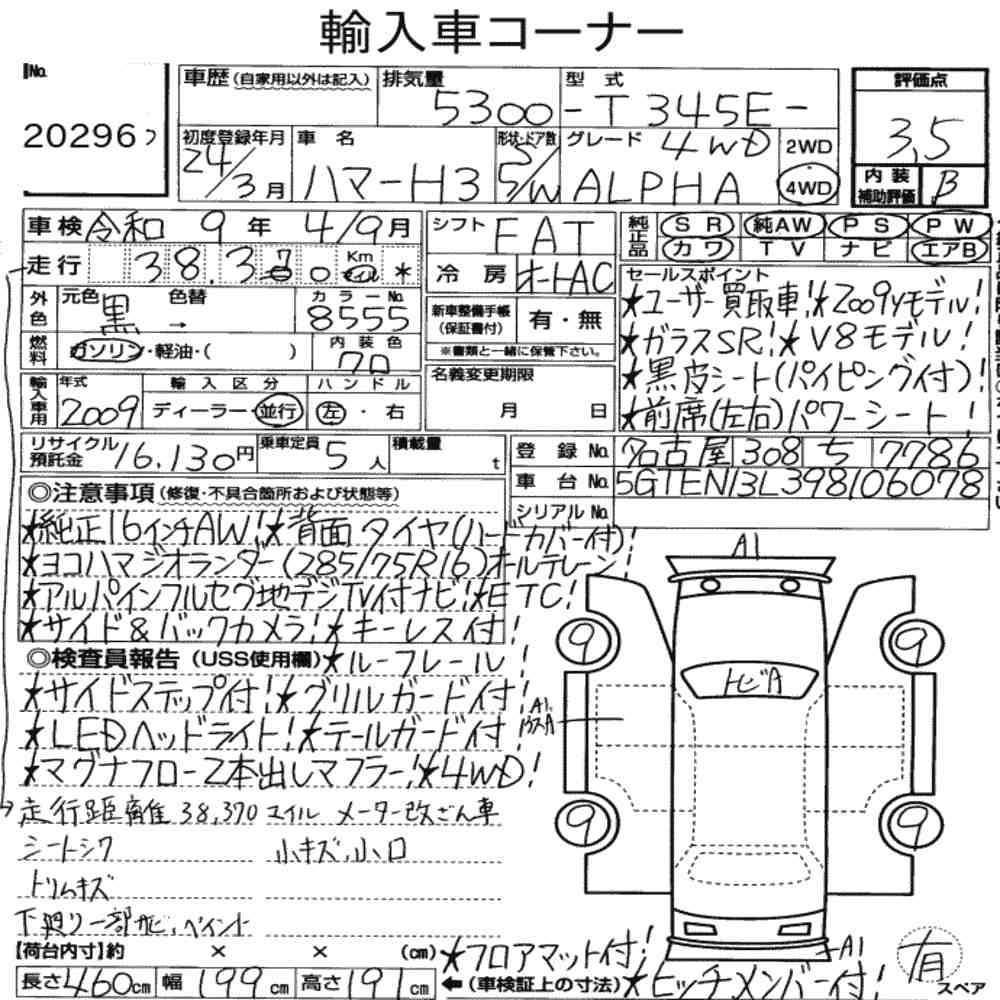 輸入車コーナー
No.
20296
車歴(自家用以外は記入)
排気量
5300
型 式
-T345E-
評価点
3.5
初度登録年月
24/3月
車 名
ハマーH3
形状・ドア数
5/W
グレード
4WD
ALPHA
2WD
4WD
内装補助評価
B
車検 令和 9年 4/9月
シフト FAT
純正品
SR 純AW PS PW
カワ TV ナビ エアB
走行
Km
マイル
*
冷房 オートAC
外色
元色 黒 → 色替
カラーNo.
8555
新車整備手帳
(保証書付)
有・無
※書類と一緒に保管下さい。
燃料
ガソリン・軽油・( )
内装色
クロ
セールスポイント
★ユーザー買取車!★2009yモデル!
★ガラスSR!★V8モデル!
★黒皮シート(パイピング付)!
★前席(左右)パワーシート!
輸入車用
年式
2009
輸入区分
ディーラー・並行
ハンドル
左・右
名義変更期限
月 日
リサイクル預託金
16,130円
乗車定員
5人
積載量
t
登録No. 名古屋 308 ち 7786
車台No. 5GTEN13L398106078
シリアルNo.
◎注意事項(修復・不具合箇所および状態等)
★純正16インチAW!★背面タイヤ(ハードカバー付)!
★ヨコハマジオランダー(285/75R16)オールテレーン!
★アルパインフルセグ地デジTV付ナビ!★ETC!
★サイド&バックカメラ!★キーレス付!
◎検査員報告(USS使用欄)★ルーフレール!
★サイドステップ付!★グリルガード付!
★LEDヘッドライト!★テールガード付
★マグナフロー2本出しマフラー!★4WD!
走行距離 38,370マイル メーター改ざん車
シートシワ 小キズ、小凹
トリムキズ
下廻り一部サビ、ペイント
A1
9
9
トビA
A1
9
9
A1
【荷台内寸】約 × × (cm)
★フロアマット付!
長さ460cm 幅199cm 高さ191cm
←(車検証上の寸法)
★ヒッチメンバー付!
有
スペア